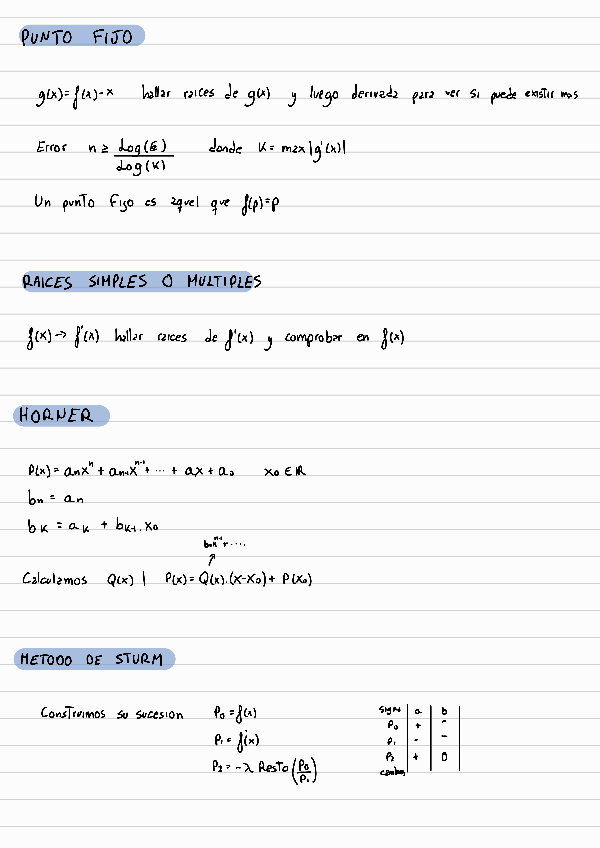 PUNTO FIJO
g(x)=f(x)-x hallar raices de g(x) y luego derivada para ver si puede existir mas
Error n ≥ Log(ε) / Log(K) donde K = max |g'(x)|
Un punto Fijo es aquel que f(p)=p
RAICES SIMPLES O MULTIPLES
f(x) → f'(x) hallar raices de f'(x) y comprobar en f(x)
HORNER
P(x) = aₙxⁿ + aₙ₋₁xⁿ⁻¹ + ... + ax + a₀ x₀ ∈ ℝ
bₙ = aₙ
bₖ = aₖ + bₖ₊₁.x₀
Calculamos Q(x) | P(x) = Q(x).(x-x₀) + P(x₀)
METODO DE STURM
Construimos su sucesion P₀ = f(x)
P₁ = f'(x)
P₂ = -λ Resto (P₀/P₁)
signo a b
P₀ + -
P₁ - -
P₂ + 0